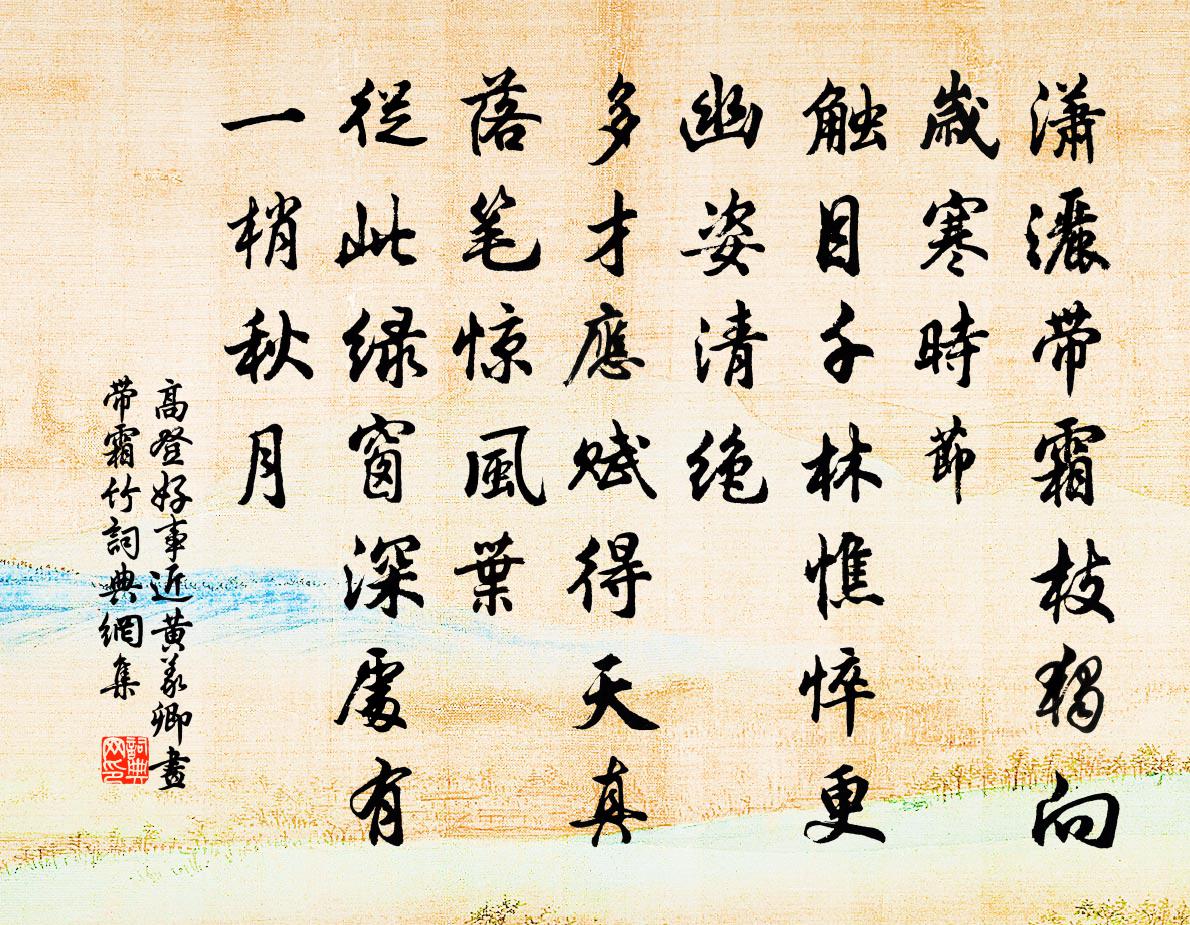 潇灑带霜枝獨向
歲寒時節
触目千林憔悴更
幽姿清絶
多才應赋得天真
落笔惊風葉
從此緑窗深處有
一梢秋月
高登好事近黄義卿畫
带霜竹詞典網集
詞典网印